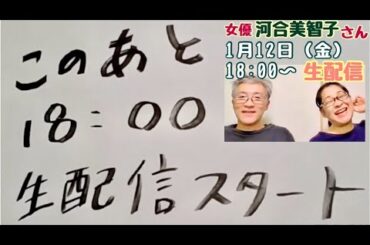 女優 河合美智子さん
1月12日（金）
18:00〜 生配信
このあと
18:00
生配信スタート